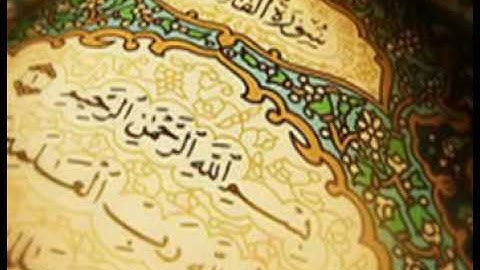 سُورَةُ الفَا
بِسْمِ ٱللَّهِ ٱلرَّحْمَٰنِ ٱلرَّحِيمِ ١
رَبِّ ٱلْعَٰلَمِ